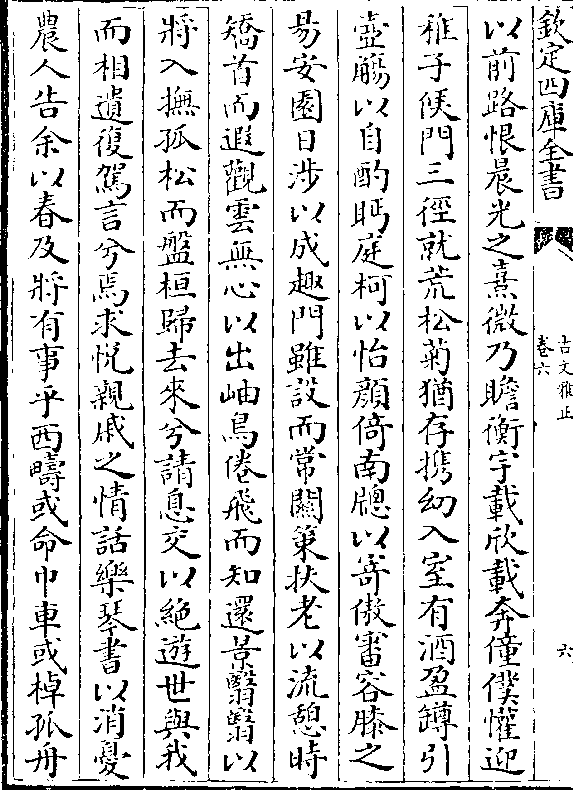 欽定四庫全書
古文雅正
卷六
六
以前路恨晨光之熹微乃瞻衡宇載欣載奔僮僕懽迎
稚子候門三徑就荒松菊猶存携幼入室有酒盈罇引
壺觴以自酌眄庭柯以怡顔倚南牕以寄傲審容膝之
易安園日涉以成趣門雖設而常關策扶老以流憩時
矯首而遐觀雲無心以出岫鳥倦飛而知還景翳翳以
將入撫孤松而盤桓歸去來兮請息交以絶遊世與我
而相遺復駕言兮焉求悅親戚之情話樂琴書以消憂
農人告余以春及將有事乎西疇或命巾車或棹孤舟